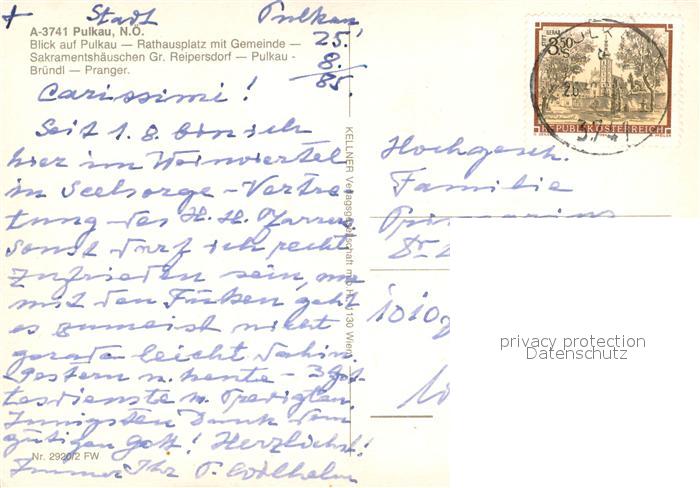 + Stadt Pulkau,
25.
8.
85.
A-3741 Pulkau, N.Ö.
Blick auf Pulkau — Rathausplatz mit Gemeinde —
Sakramentshäuschen Gr. Reipersdorf — Pulkau -
Bründl — Pranger.
Carissimi!
Seit 1. 8. bin ich
hier im Weinviertel
in Seelsorge-Vertre
tung des H. H. Pfarrers
Sonst darf ich recht
zufrieden sein, nur
mit den Füßen geht
es zumeist nicht
gerade leicht dahin.
Gestern u. heute - 3 Got-
tesdienste u. Predigten.
Innigsten Dank dem
gütigen Gott! Herzlichst!
Immer Ihr P. Wilhelm
Nr. 2920/2 FW
KELLNER Verlagsgesellschaft 1130 Wien
3.50 S
REPUBLIK ÖSTERREICH
3741
Hochgesch.
Familie
Primarius
Dr.
1010
privacy protection
Datenschutz